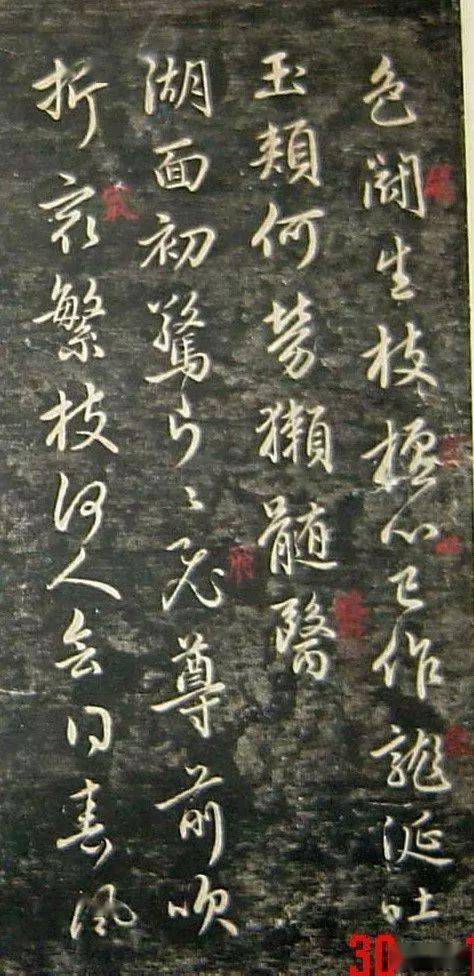 色闘生枝檀心已作龍涎吐
玉頰何勞獺髓醫
湖面初驚片〻飛尊前吹
折最繁枝何人会得春風
30